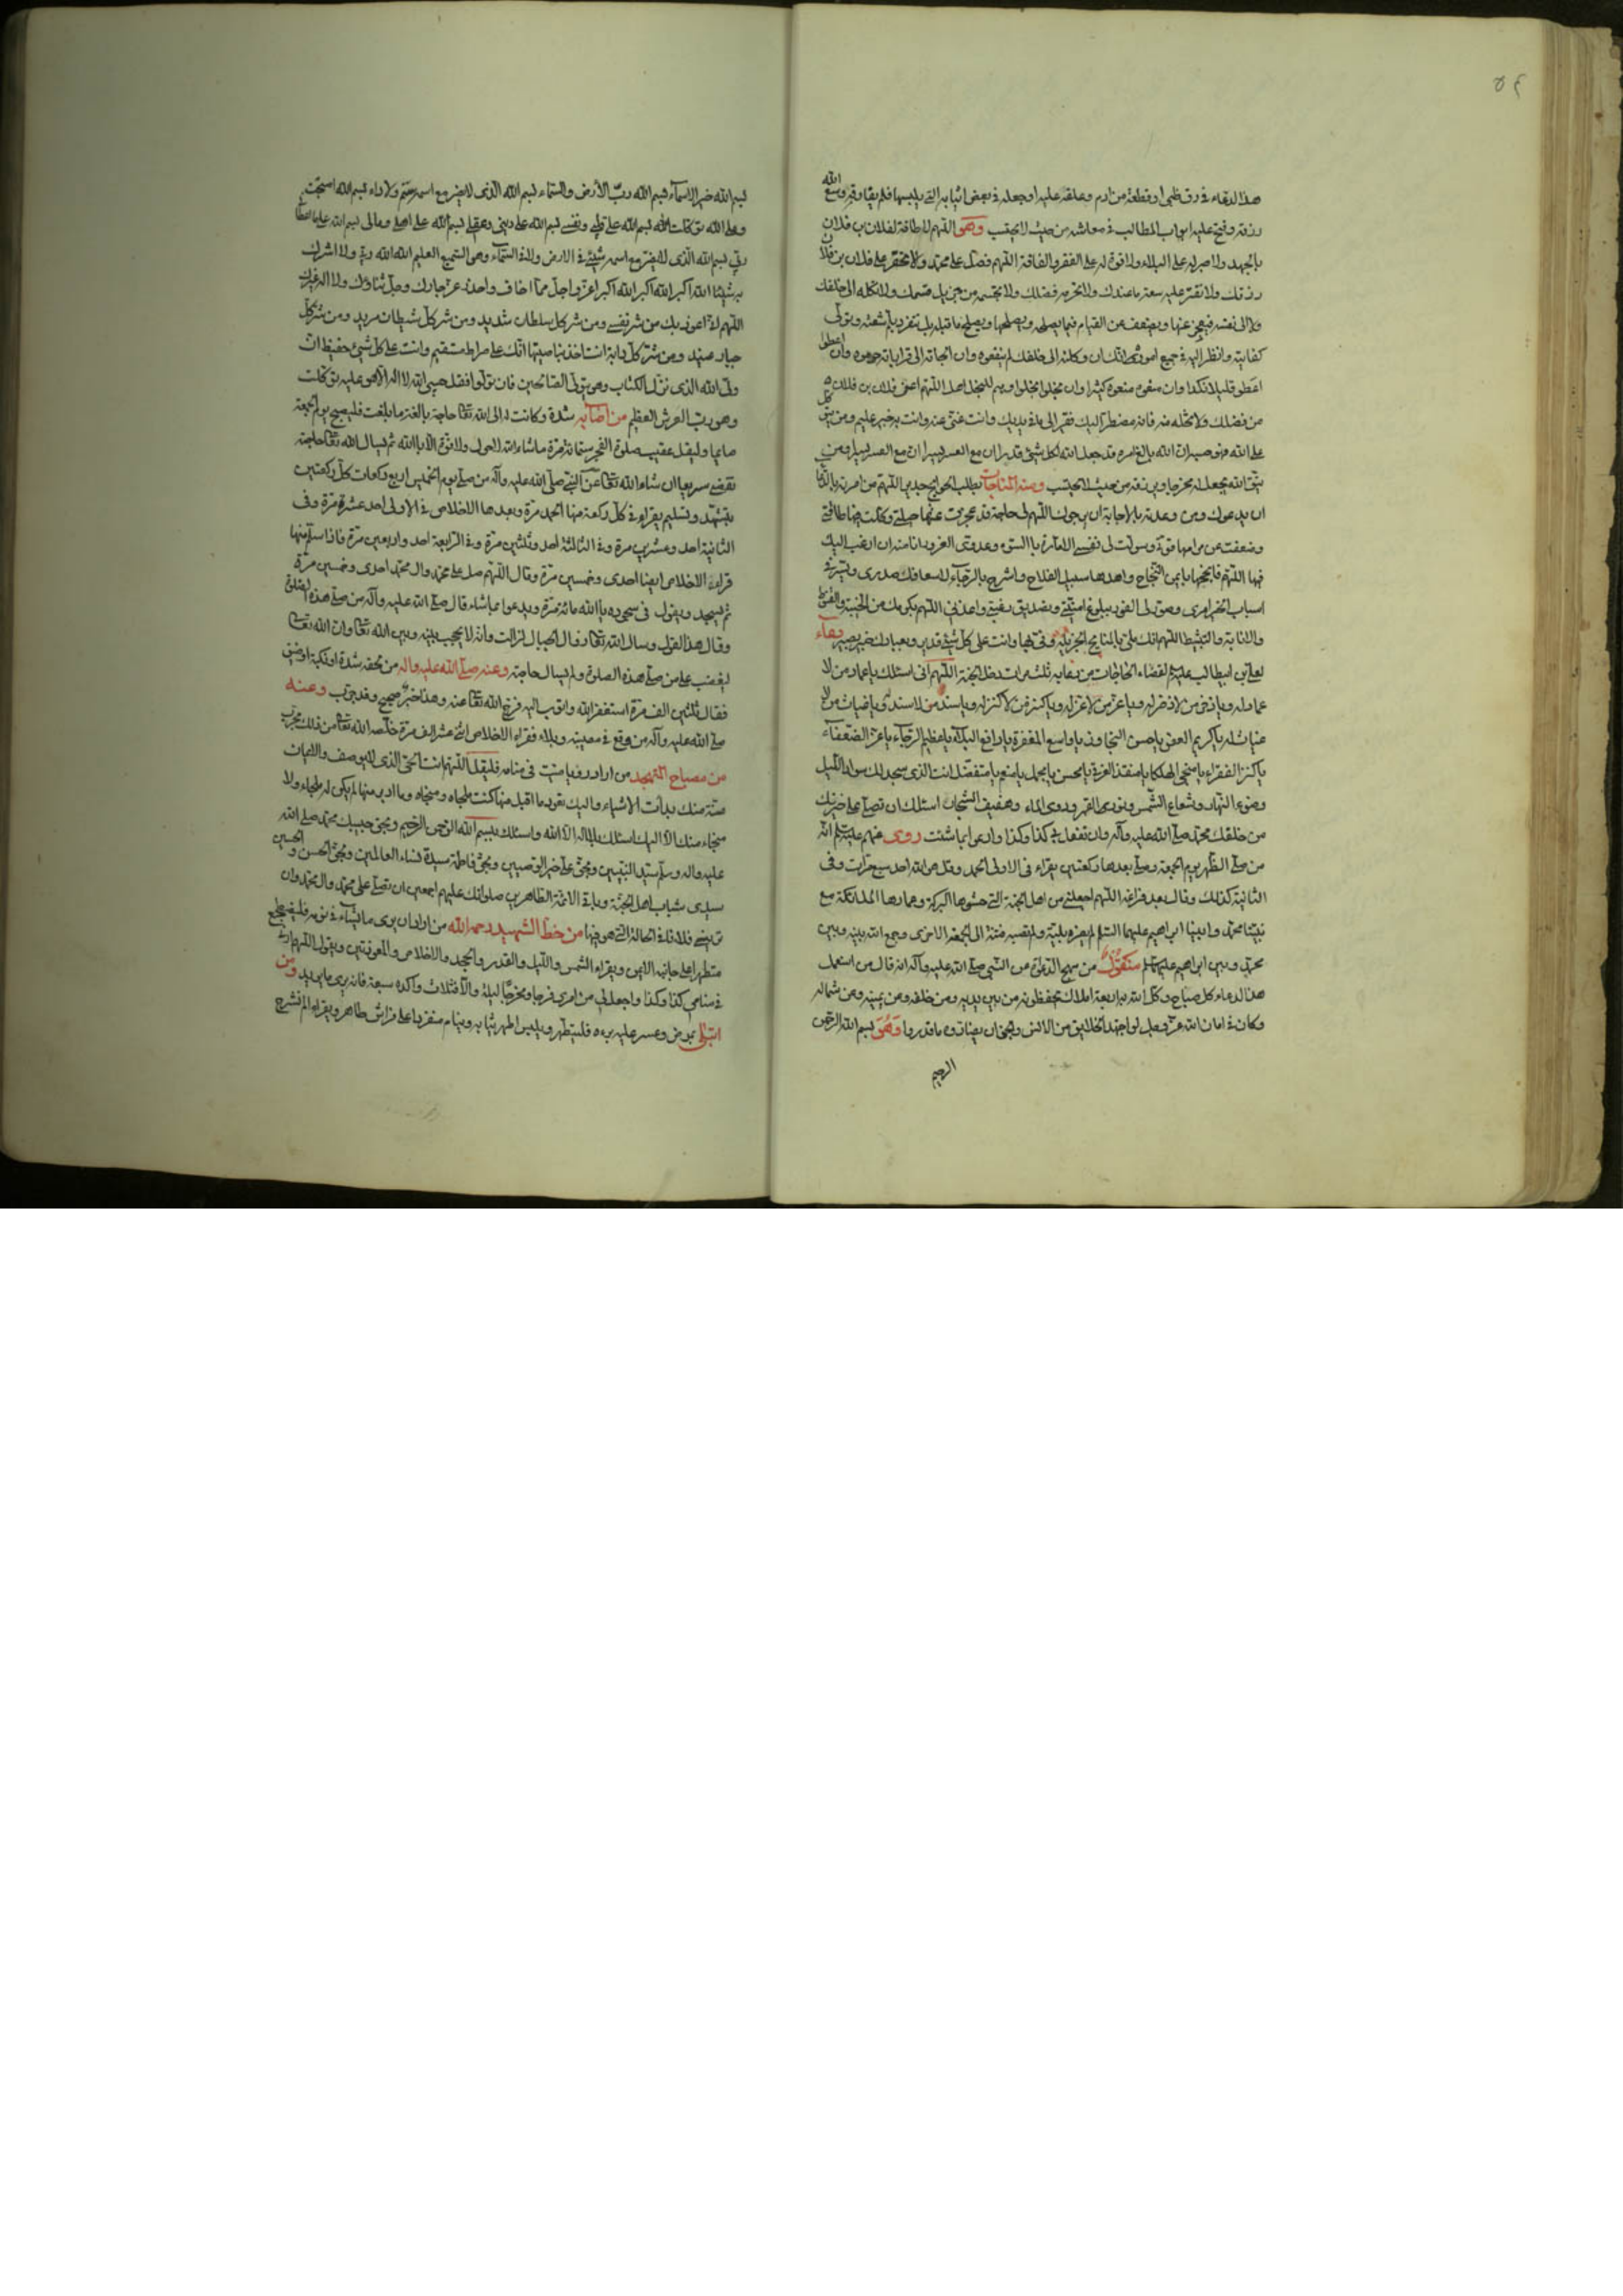 ٥٤
هذا الدعاء في رق ظبي او قطعة من ادم وعلقه عليه او جعله في بعض ثيابه التي يلبسها فلم يفارقه وسع الله
رزقه وفتح عليه ابواب المطالب في معاشه من حيث لا يحتسب وهو اللهم لا طاقة لفلان بن فلان
بالجهد ولا صبر له على البلاء ولا قوة له على الفقر والفاقة اللهم فصل على محمد ولا تحظر على فلان بن فلان
رزقك ولا تقتر عليه سعة ما عندك ولا تحرمه فضلك ولا تحسمه من جزيل قسمك ولا تكله الى خلقك
ولا الى نفسه فيعجز عنها ويضعف عن القيام فيما يصلحه ويصلح ما قبله بل تنفرد بلم شعثه وتولى
كفايته وانظر اليه في جميع اموره انك ان وكلته الى خلقك لم ينفعوه وان الجاته الى قراباته حرموه وان اعطوا
اعطوا قليلا نكدا وان منعوه منعوه كثيرا وان بخلوا بخلوا وهم للبخل اهل اللهم اغن فلان بن فلان
من فضلك ولا تخله منه فانه مضطر اليك فقير الى ما في يديك وانت غني عنه وانت به خبير عليم ومن يتوكل
على الله فهو حسبه ان الله بالغ امره قد جعل الله لكل شيء قدرا ان مع العسر يسرا ان مع العسر يسرا ومن
يتق الله يجعل له مخرجا ويرزقه من حيث لا يحتسب ومنه المناجات بطلب الحوائج جدير اللهم من امرته بالدعاء
ان يدعوك ومن وعدته بالاجابة ان يرجوك اللهم لي حاجة قد عجزت عنها حيلتي وكلت فيها طاقتي
وضعفت عن مرامها قوتي وسولت لي نفسي الامارة بالسوء وعدوي الغرور انا منه ان ارغب اليك
فيها اللهم فانجحها بايمن النجاح واهدها سبيل الفلاح واشرح بالرجاء لاسعافك صدري ويسر في
اسباب الخير امري وصور لي الفوز ببلوغ امنيتي وتصديق رغبتي واعذني اللهم بكرمك من الخيبة والقنوط
والاناية والتثبيط اللهم انك ملي بالمنايح الجزيلة وفي بها وانت على كل شيء قدير وبعبادك خبير بصير دعاء
لعلي بن ابيطالب لقضاء الحاجات من دعا به ثلث مرات دخل الجنة اللهم اني اسئلك يا عماد من لا
عماد له ويا ذخر من لا ذخر له ويا عز من لا عز له ويا كنز من لا كنز له ويا سند من لا سند له ويا غياث من لا
غياث له يا كريم العفو يا حسن التجاوز يا واسع المغفرة يا دافع البلاء يا عظيم الرجاء يا عز الضعفاء
يا كنز الفقراء يا منجي الهلكى يا منقذ الغرقى يا محسن يا مجمل يا منعم يا متفضل انت الذي سجد لك سواد الليل
وضوء النهار وشعاع الشمس ونور القمر ودوي الماء وحفيف الشجر اسئلك ان تصلي على خيرتك
من خلقك محمد صلى الله عليه وآله وان تفعل بي كذا وكذا وادع بما شئت روى عنهم عليهم السلم انه
من صلى الظهر يوم الجمعة وصلى بعدها ركعتين يقراء في الاولى الحمد وقل هو الله احد سبع مرات وفي
الثانية كذلك وقال بعد فراغه اللهم اجعلني من اهل الجنة التي حشوها البركة وعمارها الملائكة مع
نبينا محمد وابينا ابراهيم عليهما السلم لم يضره بلية ولم تصبه فتنة الى الجمعة الاخرى وجمع الله بينه وبين
محمد وبين ابراهيم عليهما السلم منقول من مهج الدعوات عن النبي صلى الله عليه وآله انه قال من استعمل
هذا الدعاء كل صباح وكل الله به اربعة املاك تحفظونه من بين يديه ومن خلفه ومن يمينه ومن شماله
وكان في امان الله عز وجل لو اجتهد الخلايق من الانس والجن ان يضاروه ما قدروا وهو بسم الله الرحمن
الرحيم
بسم الله خير الاسماء بسم الله رب الارض والسماء بسم الله الذي لا يضر مع اسمه سم ولا داء بسم الله اصبحت
وعلى الله توكلت بسم الله على قلبي ونفسي بسم الله على ديني وعقلي بسم الله على اهلي ومالي بسم الله على ما اعطاني
ربي بسم الله الذي لا يضر مع اسمه شيء في الارض ولا في السماء وهو السميع العليم الله الله ربي ولا اشرك
به شيئا الله اكبر الله اكبر الله اكبر اعز واجل مما اخاف واحذر عز جارك وجل ثناؤك ولا اله غيرك
اللهم اني اعوذ بك من شر نفسي ومن شر كل سلطان شديد ومن شر كل شيطان مريد ومن شر كل
جبار عنيد ومن شر كل دابة انت اخذ بناصيتها انك على صراط مستقيم وانت على كل شيء حفيظ ان
ولي الله الذي نزل الكتاب وهو يتولى الصالحين فان تولوا فقل حسبي الله لا اله الا هو عليه توكلت
وهو رب العرش العظيم من اصابه شدة وكانت له الى الله تعالى حاجة بالغة ما بلغت فليصبح يوم الجمعة
صايما وليقل عقيب صلوة الفجر ستمائة مرة ما شاء الله لا حول ولا قوة الا بالله ثم ليسال الله تعالى حاجته
تقضى سريعا ان شاء الله تعالى عن النبي صلى الله عليه وآله من صلى يوم الخميس اربع ركعات كل ركعتين
بتشهد وتسليم يقراء في كل ركعة منها الحمد مرة وبعدها الاخلاص في الاولى احد عشرة مرة وفي
الثانية احد وعشرين مرة وفي الثالثة احد وثلثين مرة وفي الرابعة احد واربعين مرة فاذا سلم منها
قراء الاخلاص ايضا احدى وخمسين مرة وقال اللهم صل على محمد وال محمد احدى وخمسين مرة
ثم يسجد ويقول في سجوده يا الله مائة مرة ويدعو بما شاء قال صلى الله عليه وآله من صلى هذه الصلوة
وقال هذا القول وسال الله تعالى زوال الجبال لزالت وانه لا يحجب بينه وبين الله تعالى وان الله تعالى
ليغضب على من صلى هذه الصلوة ولم يسال حاجته وعنه صلى الله عليه واله من لحقه شدة او نكبة او ضيق
فقال ثلثين الف مرة استغفر الله واتوب اليه فرج الله تعالى عنه وهذا خبر صحيح وقد جرب وعنه
صلى الله عليه وآله من وقع في مصيبة وبلاء فقراء الاخلاص اثني عشر الف مرة خلصه الله تعالى من ذلك مجرب
من مصباح المتهجد من اراد رؤيا ميت في منامه فليقل اللهم انت الحي الذي لا يوصف والايمان
منه منك بدأت الاشياء واليك تعود ما اقبل منها كنت ملجاه ومنجاه وما ادبر منها لم يكن له ملجاء ولا
منجاء منك الا اليك اسئلك بلا اله الا الله واسئلك ببسم الله الرحمن الرحيم وبحق حبيبك محمد صلى الله
عليه واله وسلم سيد النبيين وبحق علي خير الوصيين وبحق فاطمة سيدة نساء العالمين وبحق الحسن والحسين
سيدي شباب اهل الجنة وباقي الائمة الطاهرين صلواتك عليهم اجمعين ان تصلي على محمد وال محمد وان
تريني فلانا في الحالة التي هو فيها من خط الشهيد رحمه الله من اراد ان يرى ما يشاء في نومه فليضطجع
متطهرا على جانبه الايمن ويقراء الشمس والليل والقدر والجحد والاخلاص والمعوذتين ويقول اللهم ارني
في منامي كذا وكذا واجعل لي من امري فرجا ومخرجا ليلة والا فثلاث واكده سبعة فانه يرى ما يريد ومن
ابتلى بمرض وعسر عليه برءه فليتطهر ويلبس اطهر ثيابه وينام منفردا على فراش طاهر ويقراء الم نشرح